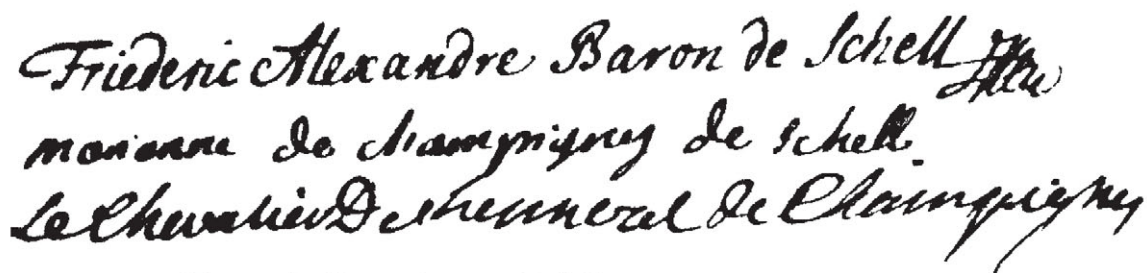 Friederic Alexandre Baron de Schell
marianne de champigney de schell
Le Chevalier De de Champigny